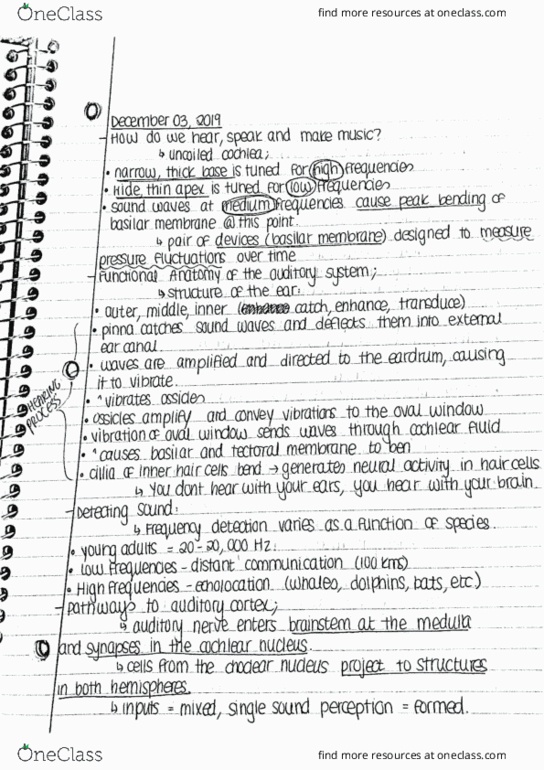 OneClass
find more resources at oneclass.com
December 03, 2019
- How do we hear, speak and make music?
↳ uncoiled cochlea;
• narrow, thick base is tuned for high frequencies
• Wide, thin apex is tuned for low frequencies
• sound waves at medium frequencies cause peak bending of
basilar membrane @ this point.
↳ pair of devices (basilar membrane) designed to measure
pressure fluctuations over time
- Functional Anatomy of the auditory system;
↳ structure of the ear:
• outer, middle, inner (enhance catch, enhance, transduce)
• pinna catches sound waves and deflects them into external
ear canal.
• waves are amplified and directed to the eardrum, causing
it to vibrate.
• ^vibrates ossicles
HEARING PROCESS
• ossicles amplify and convey vibrations to the oval window
• vibration of oval window sends waves through cochlear fluid
• ^causes basilar and tectoral membrane to ben
• cillia of inner hair cells bend → generates neural activity in hair cells
↳ You dont hear with your ears, you hear with your brain.
- Detecting sound:
↳ Frequency detection varies as a function of species.
• young adults = 20-20,000 Hz.
• Low frequencies - distant communication (100 kms)
• High frequencies - echolocation (whales, dolphins, bats, etc)
- Pathways to auditory cortex;
↳ auditory nerve enters brainstem at the medulla
and synapses in the cochlear nucleus.
↳ cells from the choclear nucleus project to structures
in both hemispheres.
↳ inputs = mixed, single sound perception = formed.
OneClass
find more resources at oneclass.com